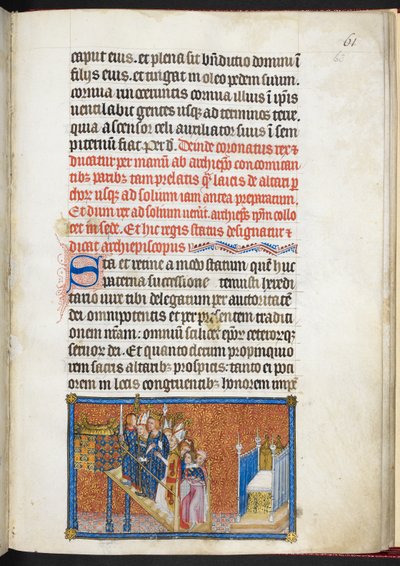 61
60
caput eius. et plena sit bn̄dictio domini ī
filijs eius. et tingat in oleo pedem suum.
cornua rinocerontis cornua illius ī ip̄is
uentilabit gentes usqꝫ ad terminos terre.
quia ascensor celi auxiliator suus ī sem
piternū fiat. Per d. Deinde coronatus rex ⁊
ducatur per manū ab archiep̄o concomitan
tibꝫ paribꝫ tam prelatis q̄ laicis de altari ꝑ
chorū usqꝫ ad solium iam antea preparatum.
Et dum rex ad solium uenit. archiep̄s ip̄m collo
cet in sede. Et hic regis status designatur ⁊
dicat archiepiscopus
Sta et retine a modo statum quē huc
paterna successione tenuisti heredi
tario iure tibi delegatum per auctoritatē
dei omnipotentis et per presentem traditi
onem nr̄am: omniū scilicet ep̄or̄ ceterorqꝫ
seruor̄ dei. Et quanto clerum propinquio
rem sacris altaribꝫ prospicis: tanto ei poci
orem in locis congruentibꝫ honorem impē